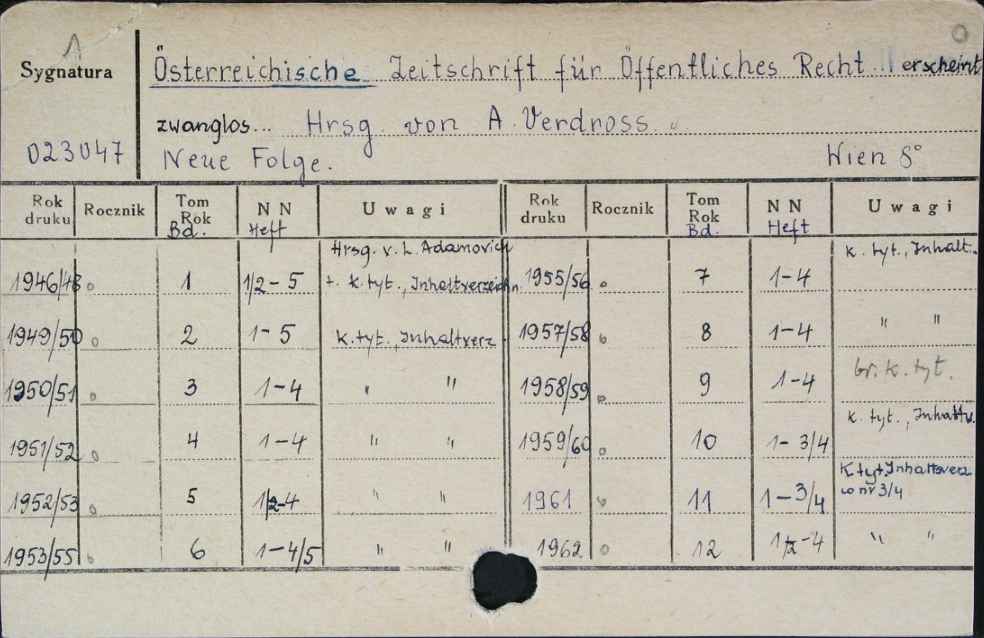 A
Sygnatura
Österreichische Zeitschrift für Öffentliches Recht erscheint
zwanglos... Hrsg. von A. Verdross
023047
Neue Folge. Wien 8°
Rok druku Rocznik Tom Rok Bd. NN Heft Uwagi Rok druku Rocznik Tom Rok Bd. NN Heft Uwagi
1946/48 1 1/2-5 Hrsg. v. L. Adamovich + k. tyt., Inhaltverzeichn. 1955/56 7 1-4 k. tyt., Inhalt.
1949/50 2 1-5 k. tyt., Inhaltverz 1957/58 8 1-4 " "
1950/51 3 1-4 " " 1958/59 9 1-4 br. k. tyt.
1951/52 4 1-4 " " 1959/60 10 1-3/4 k. tyt., Inhaltv.
1952/53 5 1/2-4 " " 1961 11 1-3/4 K tyt. Inhaltsverz w nr 3/4
1953/55 6 1-4/5 " " 1962 12 1/2-4 " "